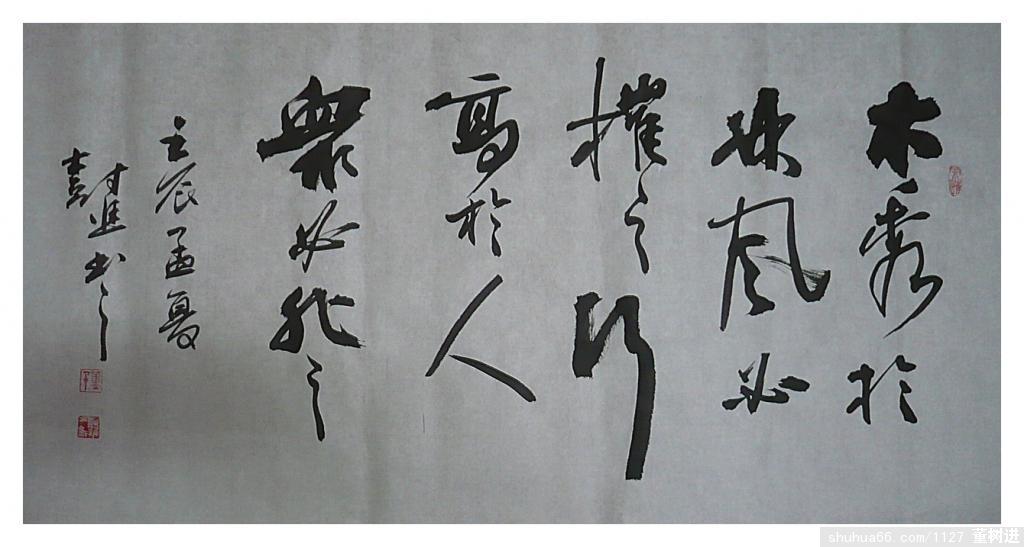 木秀於
林風必
摧之行
高於人
衆必非之
壬辰孟夏
樹進书之
shuhua66.com/1127 董树进